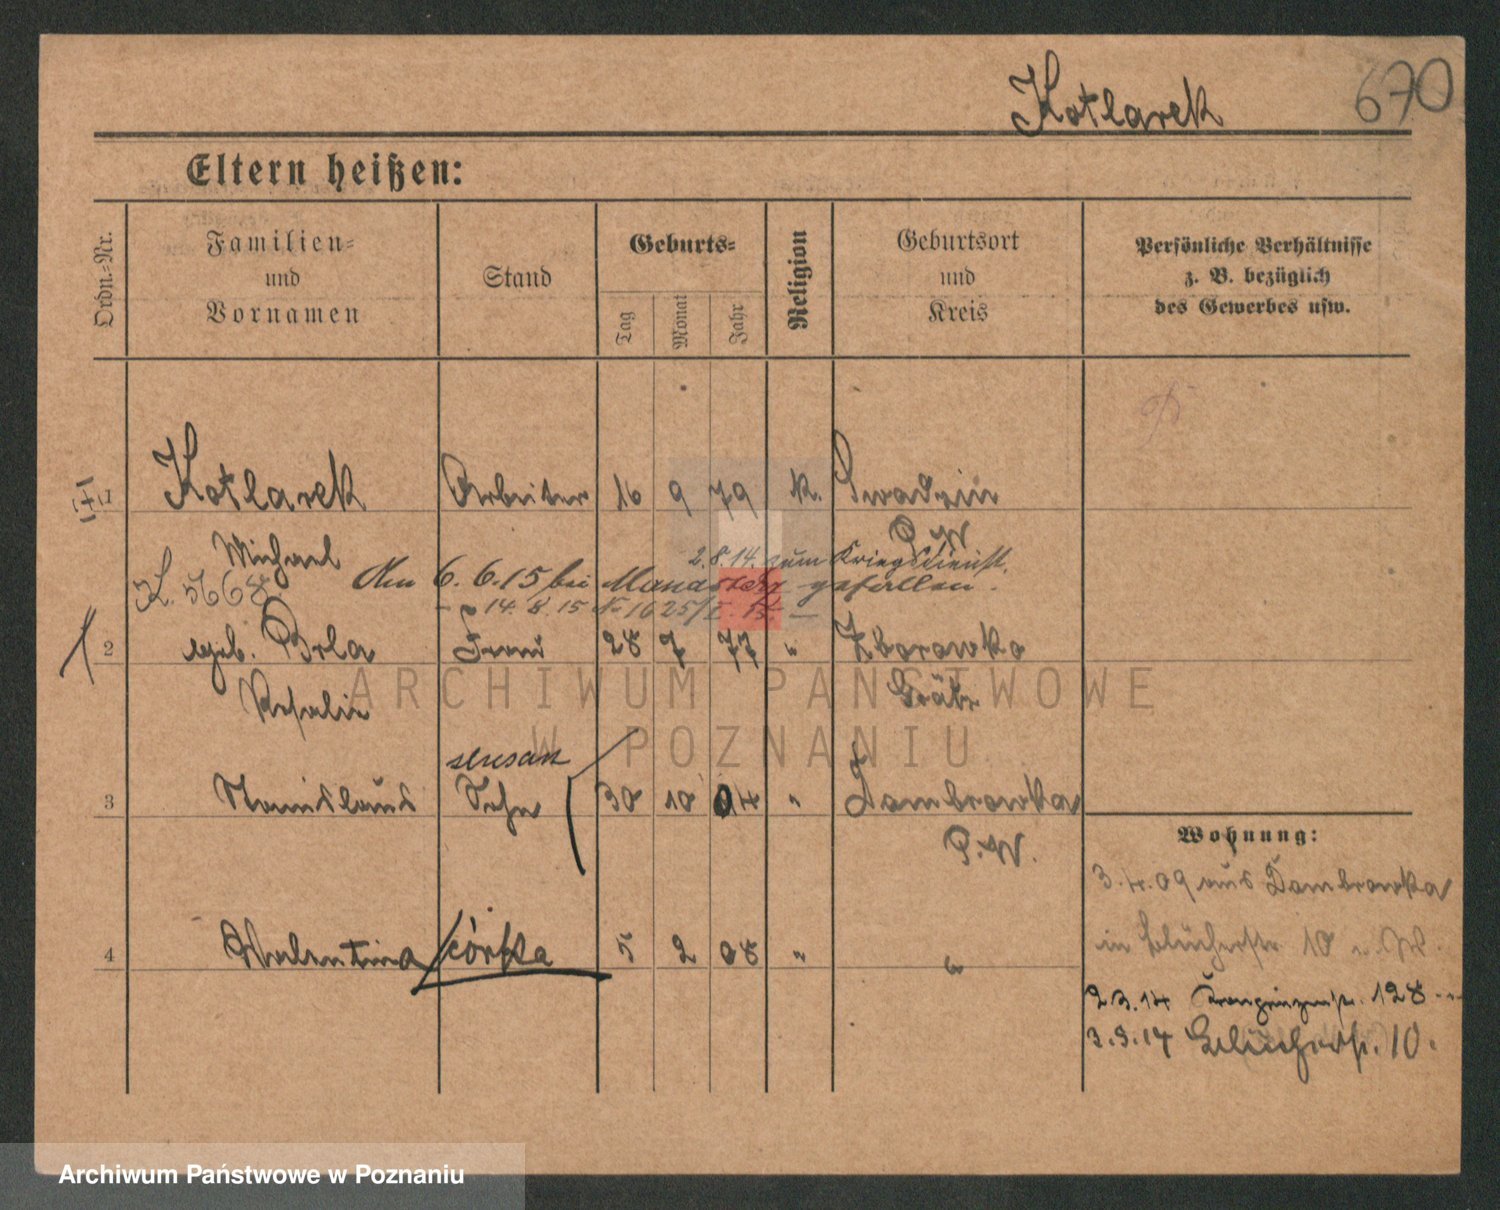 Kotlarek 670
Eltern heißen:
Ordn.-Nr.
Familien- und Vornamen
Stand
Geburts-
Tag Monat Jahr
Religion
Geburtsort und Kreis
Persönliche Verhältnisse z. B. bezüglich des Gewerbes usw.
1 Kotlarek Arbeiter 16 9 79 k. Swadzin
P. W
Michael 2.8.14. zum Kriegsdienst.
5668 Am 6.6.15 bei gefallen.
14. 8. 15 No 1625/
2 geb. Brla Frau 28 7 77 " Zborowko
Rosalie Grätz
3 Stanislaus Sohn 30 10 04 " Dombrowka
P. W.
Wohnung:
3.4.09 aus Dombrowka
in Blücherstr 10
4 Walentina córka 5 2 08 " "
2.3.14 Kronprinzenstr. 128
3.9.14 Blücherstr. 10.
ARCHIWUM PAŃSTWOWE
W POZNANIU
Archiwum Państwowe w Poznaniu